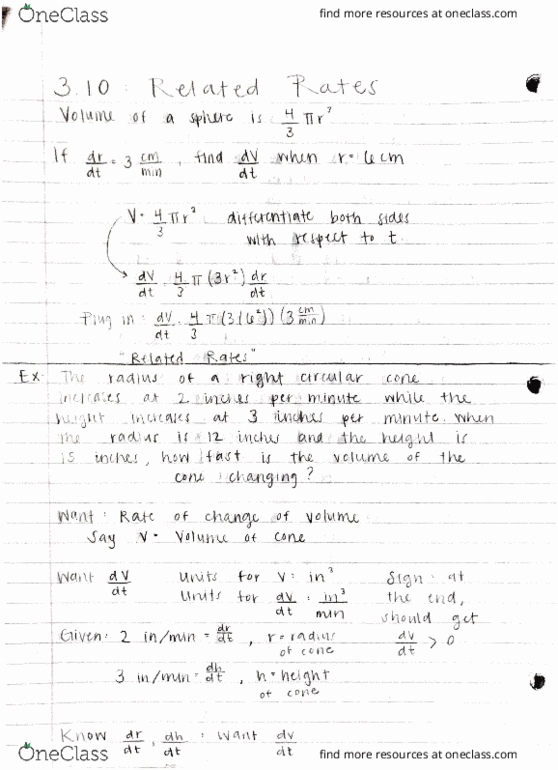 OneClass find more resources at oneclass.com
3.10: Related Rates
Volume of a sphere is 4/3 πr³
If dr/dt = 3 cm/min, find dV/dt when r = 6 cm
V = 4/3 πr³ differentiate both sides
with respect to t.
dV/dt = 4/3 π(3r²) dr/dt
Plug in: dV/dt = 4/3 π(3(6²))(3 cm/min)
"Related Rates"
Ex. The radius of a right circular cone
increases at 2 inches per minute while the
height increases at 3 inches per minute. When
the radius is 12 inches and the height is
15 inches, how fast is the volume of the
cone changing?
Want: Rate of change of volume
Say V = Volume of cone
Want dV/dt Units for V: in³ Sign: at
Units for dV/dt: in³/min the end,
should get
Given: 2 in/min = dr/dt, r = radius dV/dt > 0
of cone
3 in/min = dh/dt, h = height
of cone
Know dr/dt, dh/dt: Want dV/dt
OneClass find more resources at oneclass.com